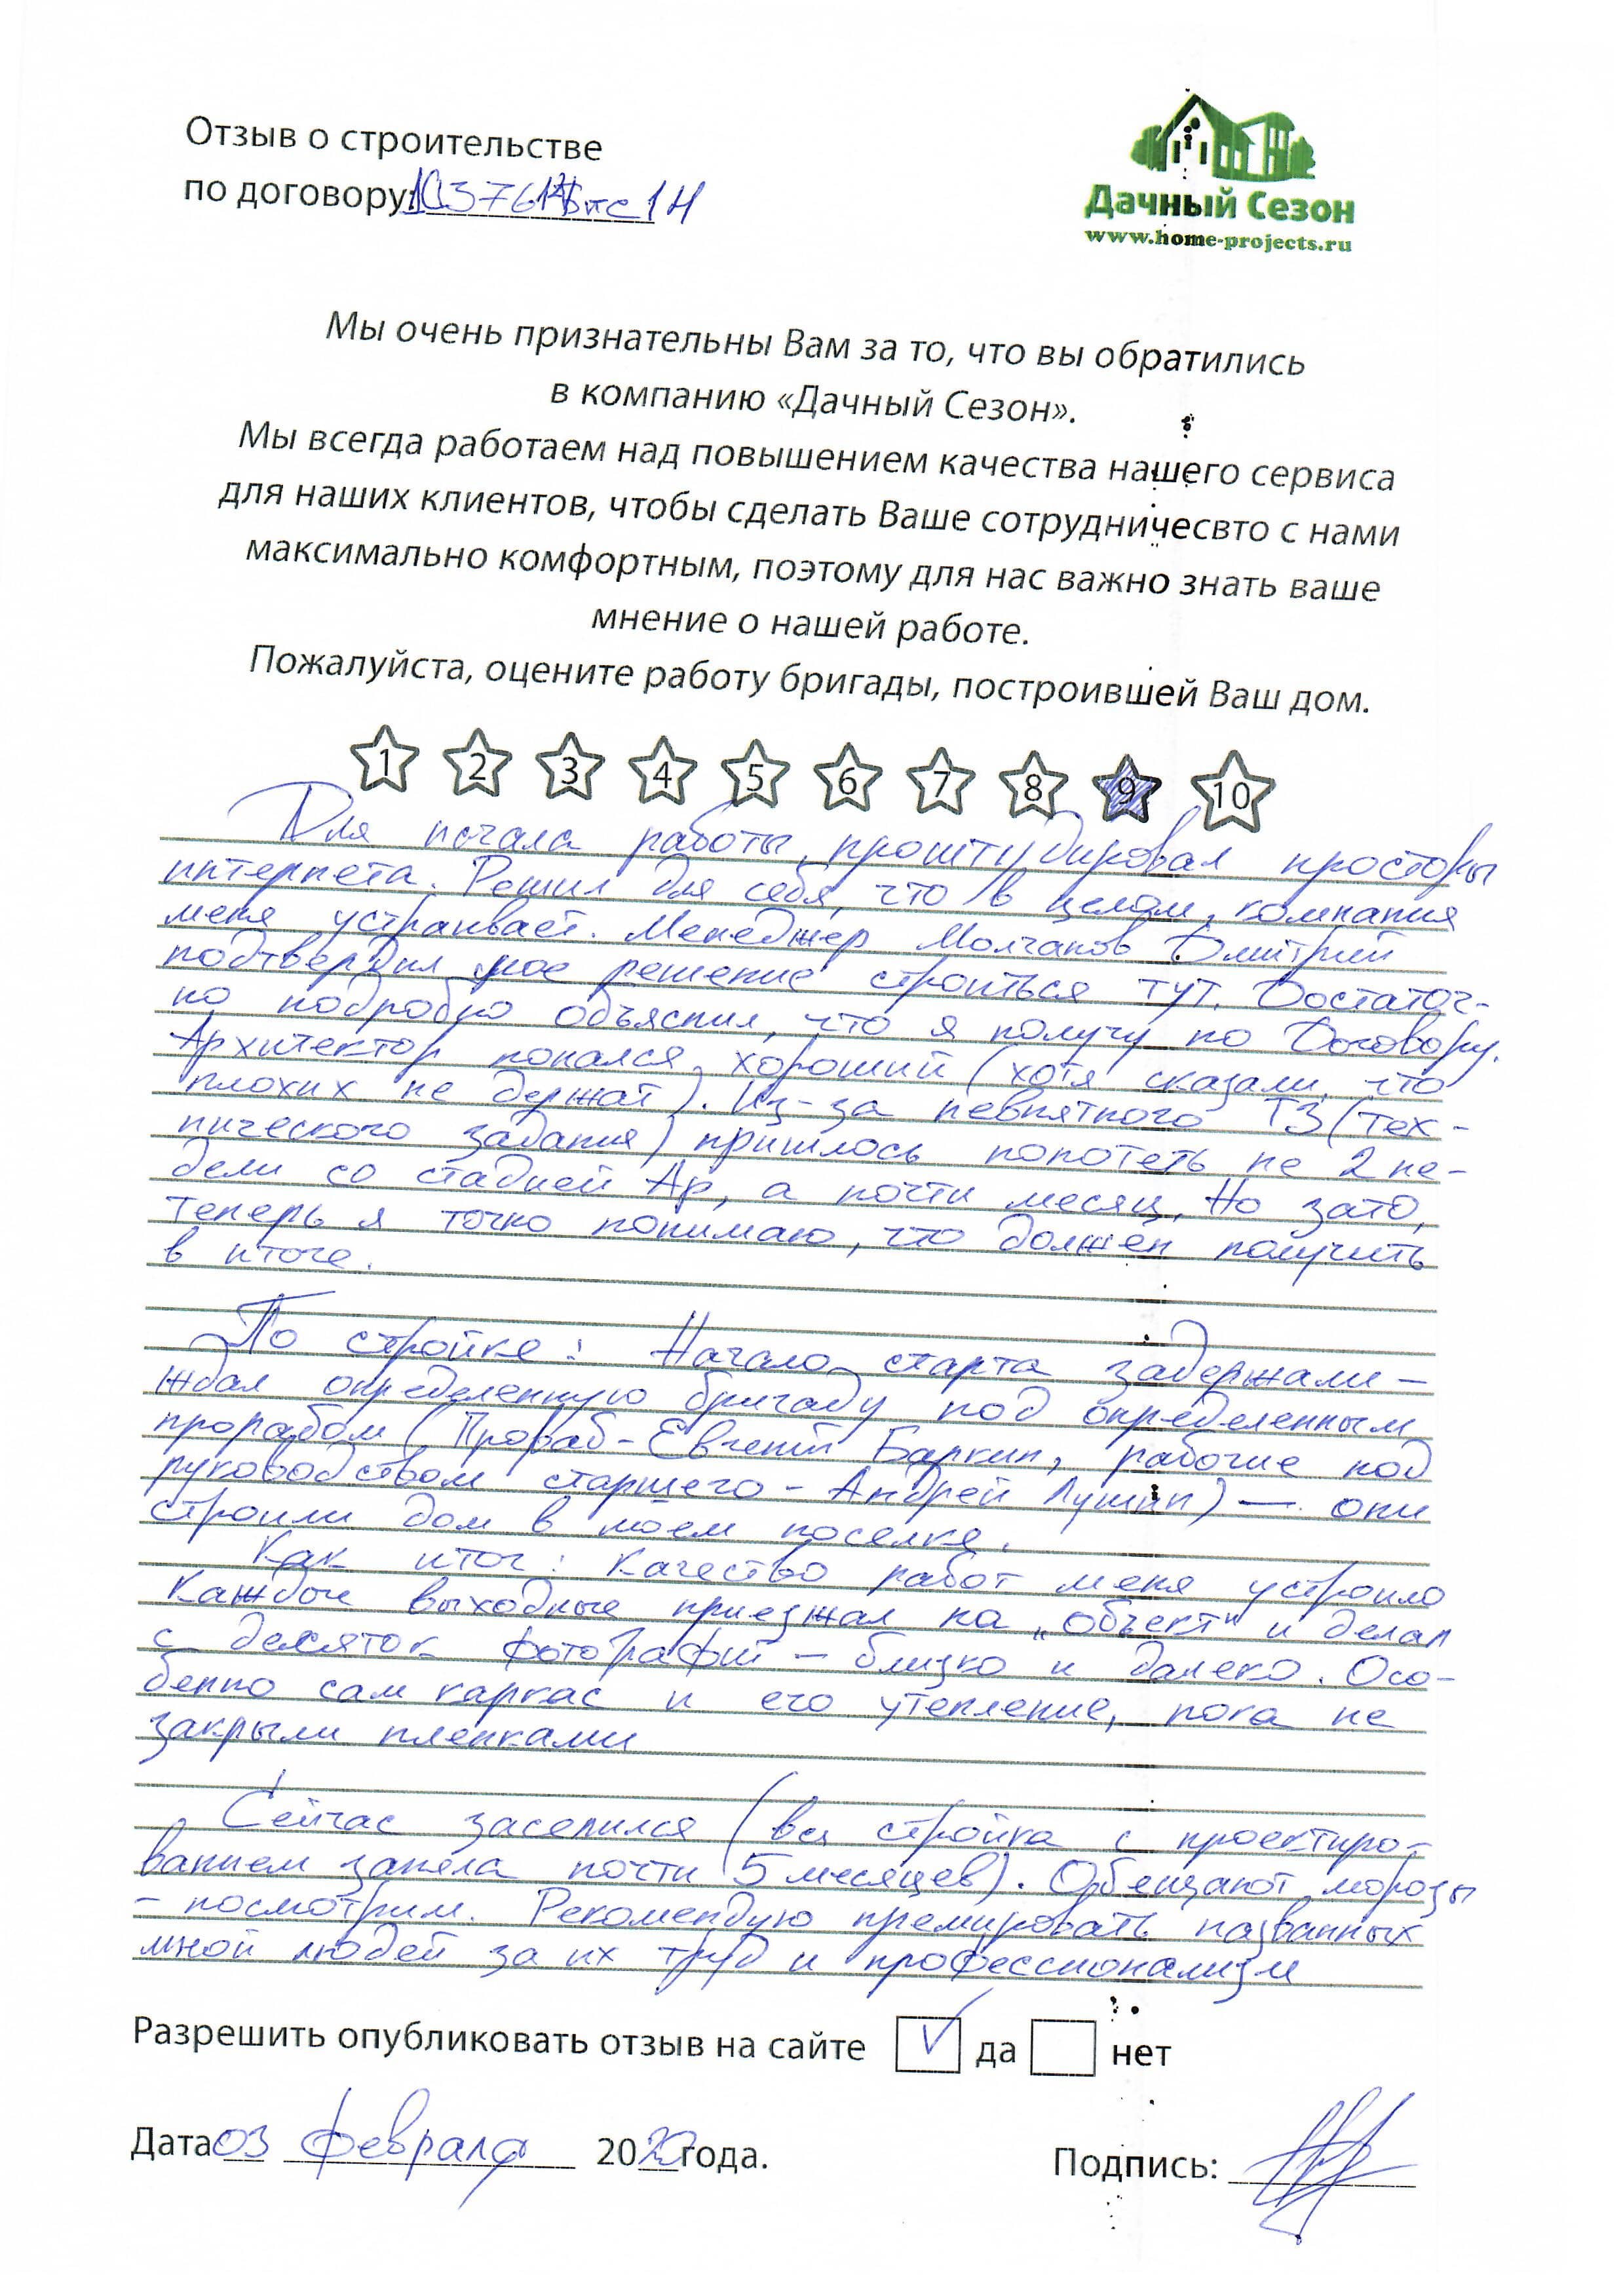 Отзыв о строительстве
по договору:
Дачный Сезон
www.home-projects.ru
Мы очень признательны Вам за то, что вы обратились
в компанию «Дачный Сезон».
Мы всегда работаем над повышением качества нашего сервиса
для наших клиентов, чтобы сделать Ваше сотрудничесвто с нами
максимально комфортным, поэтому для нас важно знать ваше
мнение о нашей работе.
Пожалуйста, оцените работу бригады, построившей Ваш дом.
1 2 3 4 5 6 7 8 9 10
Для начала работы, проштудировал просторы
интернета. Решил для себя, что в целом, компания
меня устраивает. Менеджер Молчанов Дмитрий
подтвердил мое решение строиться тут. Достаточ-
но подробно объяснил, что я получу по Договору.
Архитектор попался хороший (хотя сказали, что
плохих не держат). Из-за невнятного ТЗ (тех-
нического задания) пришлось попотеть не 2 не-
дели со стадией Ар, а почти месяц. Но зато,
теперь я точно понимаю, что должен получить
в итоге.
По стройке: Начало старта задержали -
ждал определенную бригаду под определенным
прорабом (Прораб - Евгений Баркин, рабочие под
руководством старшего - Андрей Лушин) — они
строили дом в моем поселке.
Как итог: Качество работ меня устроило
Каждые выходные приезжал на „объект" и делал
с десяток фотографий - близко и далеко. Осо-
бенно сам каркас и его утепление, пока не
закрыли пленками
Сейчас заселился (вся стройка с проектиро-
ванием заняла почти 5 месяцев). Обещают морозы
- посмотрим. Рекомендую премировать названных
мной людей за их труд и профессионализм
Разрешить опубликовать отзыв на сайте да нет
Дата 03 февраля 2020 года. Подпись: